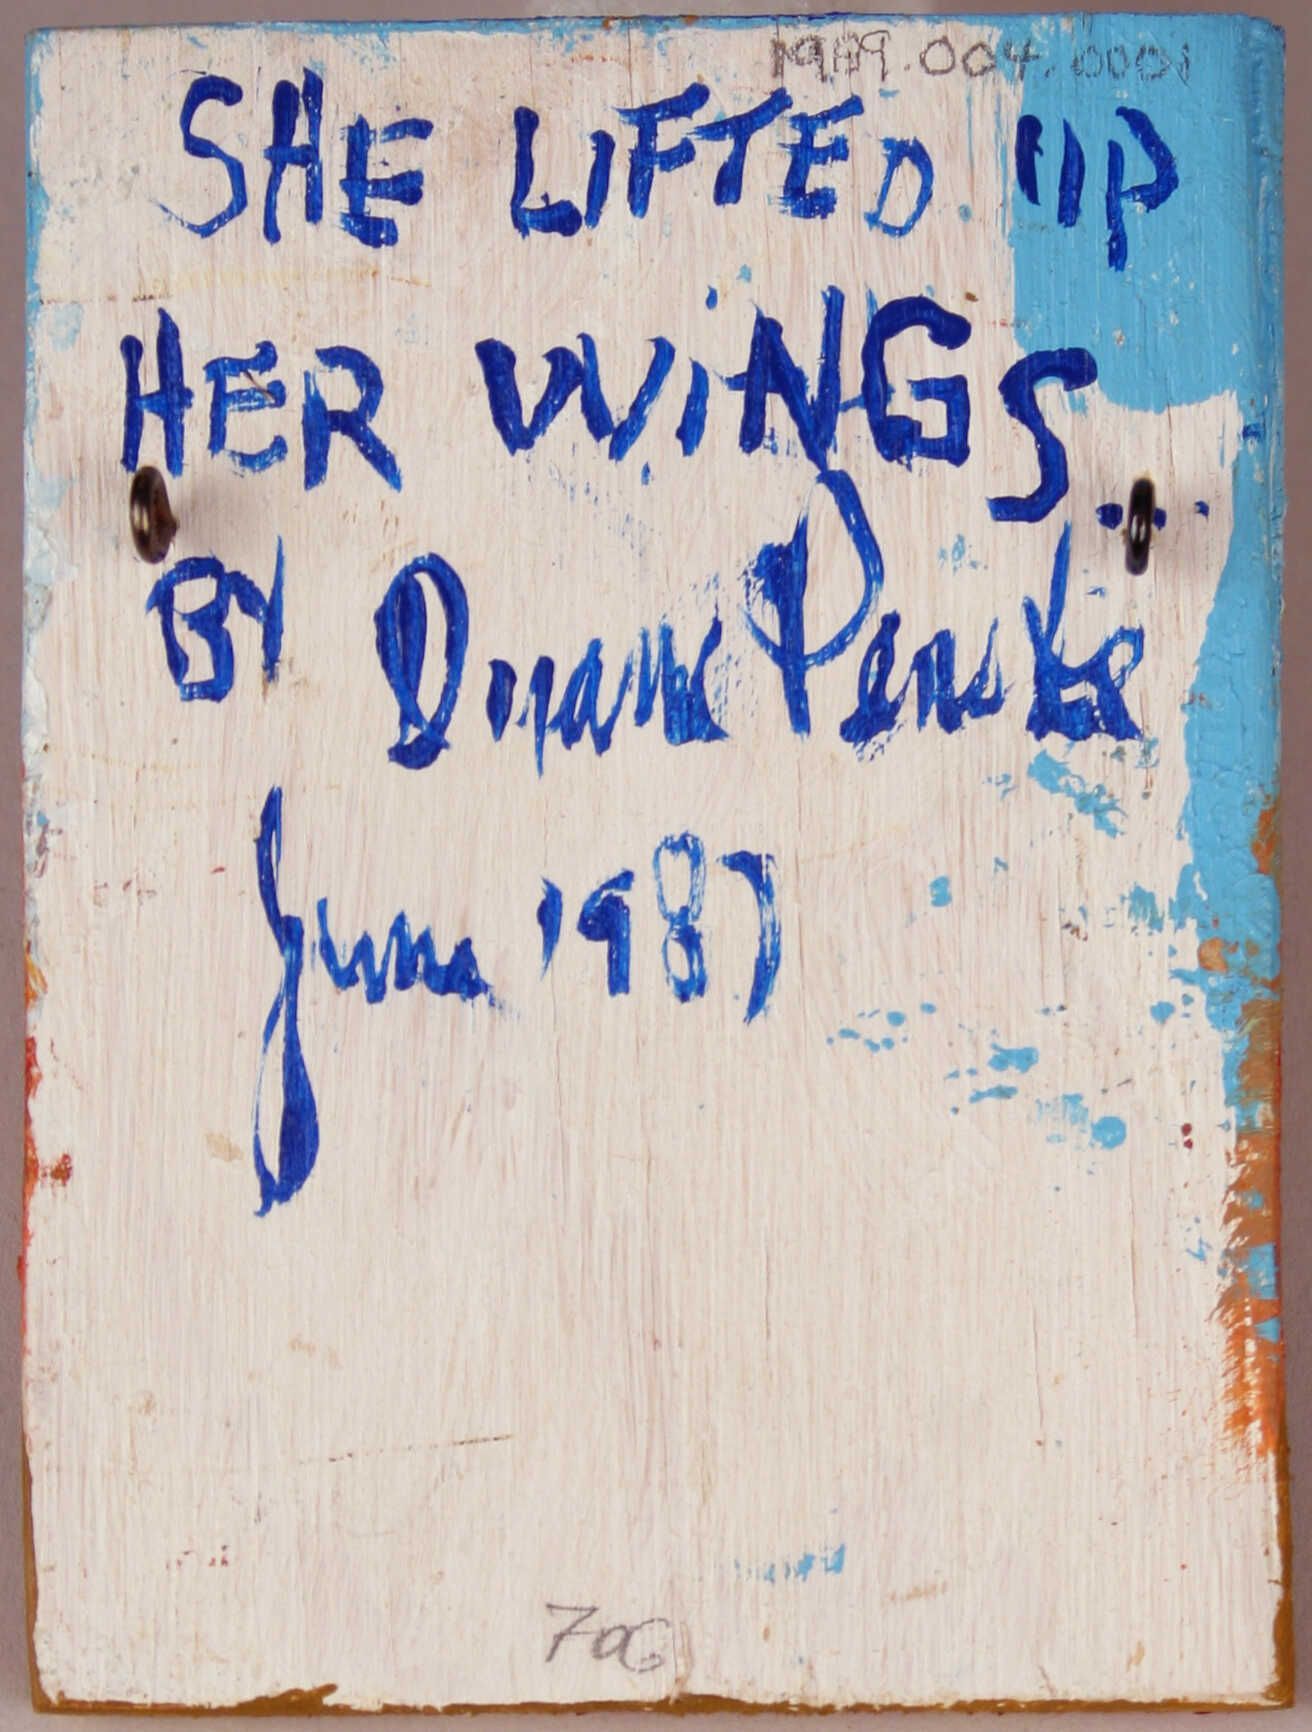 1989.004.0001
SHE LIFTED UP
HER WINGS...
BY Duane Penske
June 1987
706